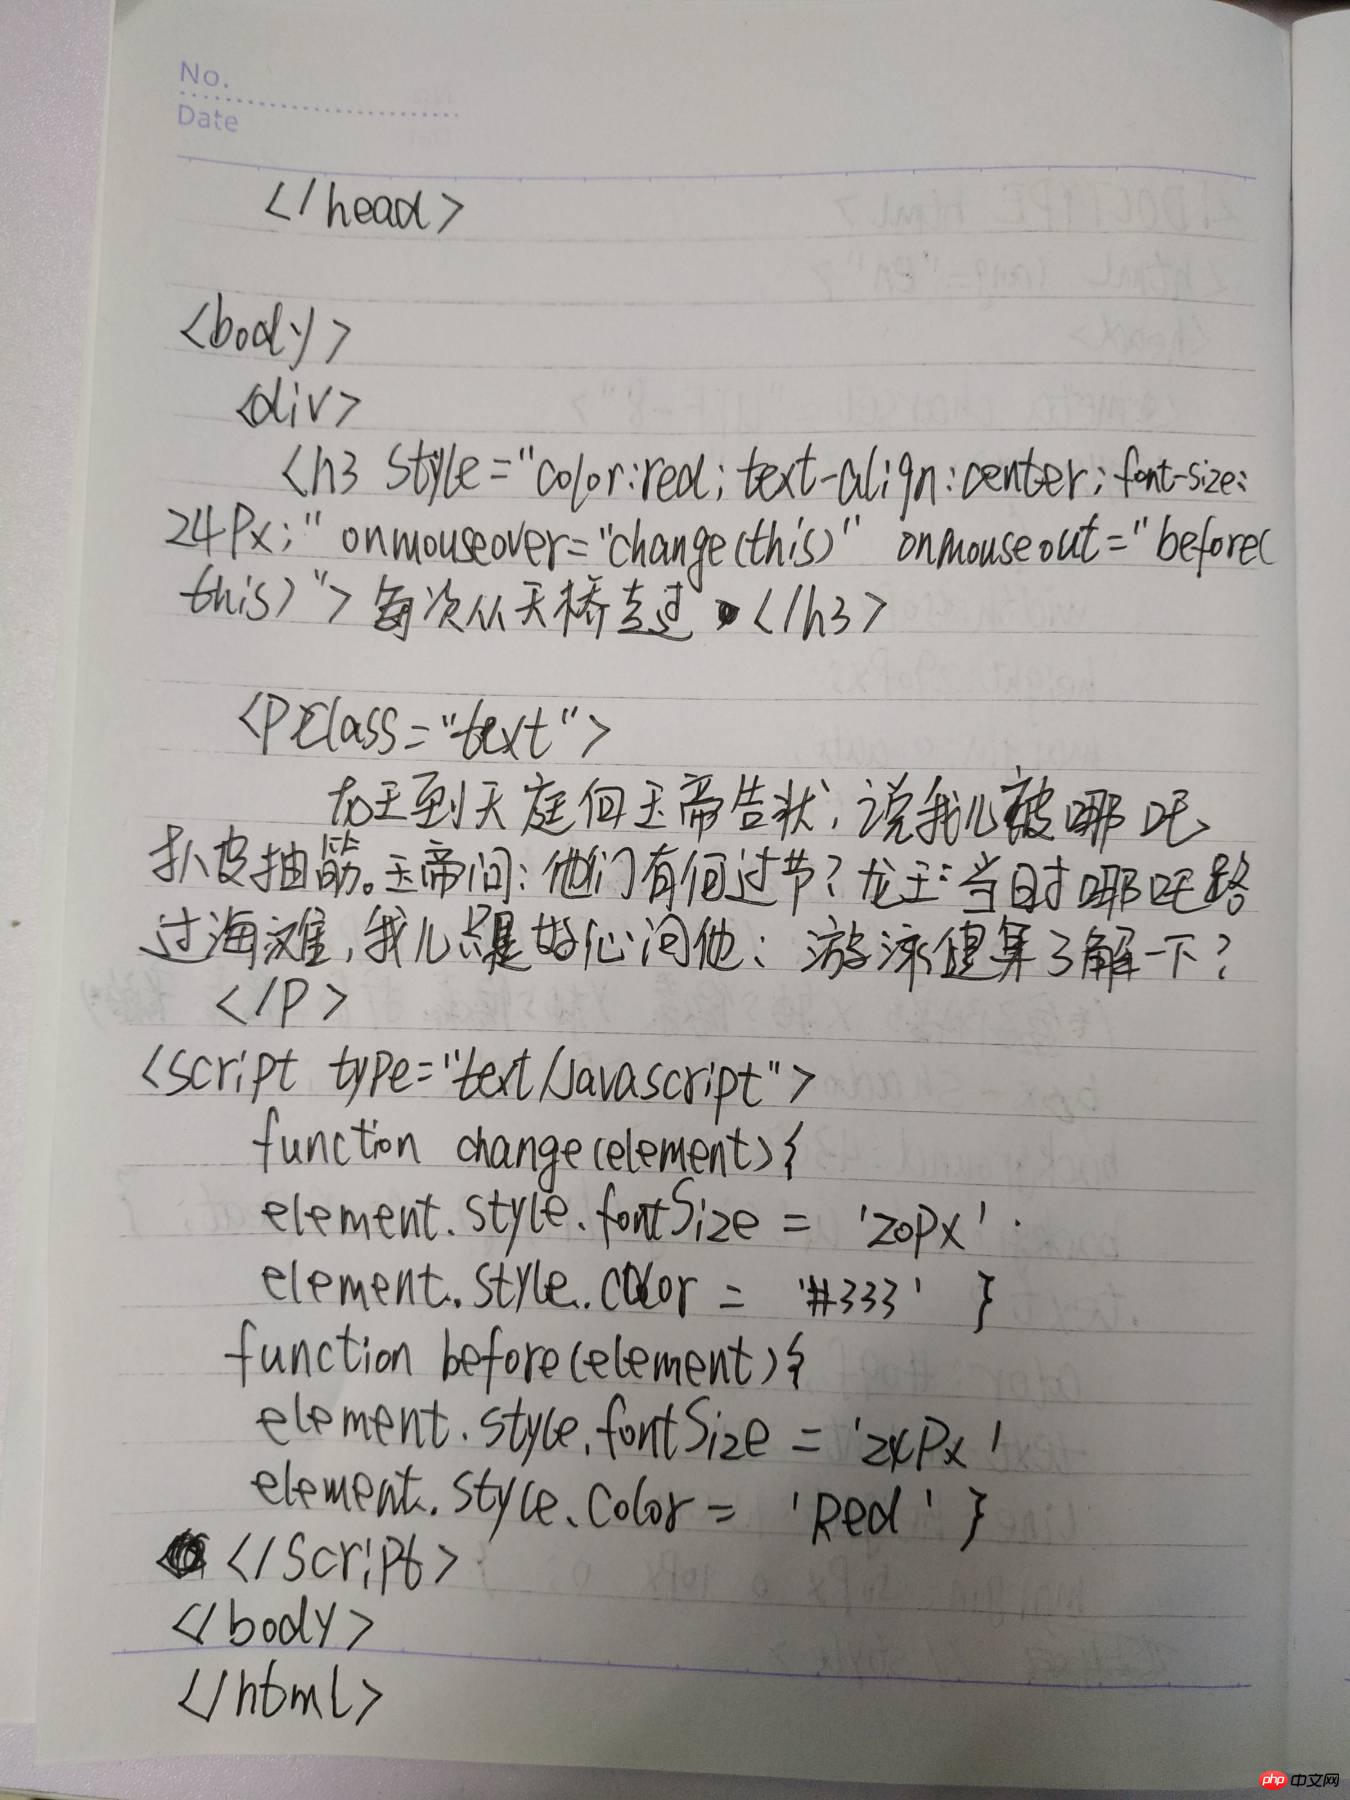 No.
Date
</head>
<body>
<div>
<h3 style="color:red; text-align:center; font-size:
24Px;" onmouseover="change(this)" onmouseout="before(
this)"> 每次从天桥走过 </h3>
<P class="text">
龙王到天庭向玉帝告状，说我儿被哪吒
扒皮抽筋。玉帝问：他们有何过节？龙王：当时哪吒路
过海滩，我儿只是好心问他：游泳健身了解一下？
</P>
<script type="text/Javascript">
function change(element){
element.style.fontSize = '20Px'
element.style.color = '#333' }
function before(element){
element.style.fontSize = '24Px'
element.style.color = 'Red' }
</script>
</body>
</html>
php 中文网